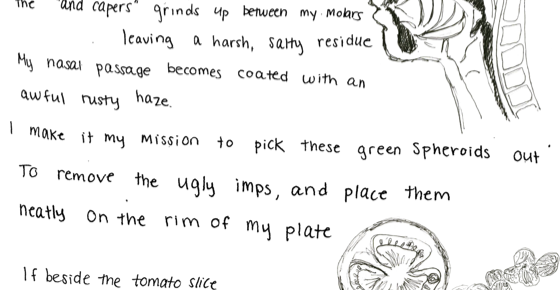 the "and capers" grinds up between my molars
leaving a harsh, salty residue
My nasal passage becomes coated with an
awful rusty haze.
I make it my mission to pick these green spheroids out
To remove the ugly imps, and place them
neatly on the rim of my plate
If beside the tomato slice